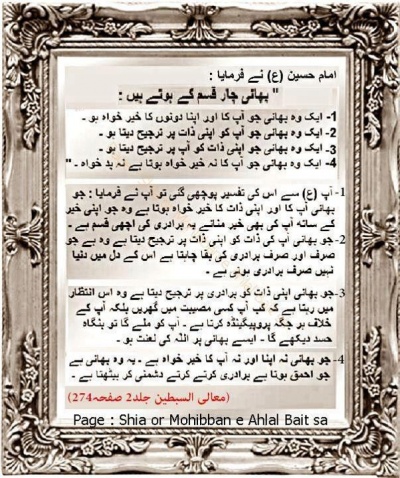 امام حسین (ع) نے فرمایا :
" بھائی چار قسم کے ہوتے ہیں :
1- ایک وہ بھائی جو آپ کا اور اپنا دونوں کا خیر خواہ ہو ۔
2- ایک وہ بھائی جو آپ کو اپنی ذات پر ترجیح دیتا ہو ۔
3- ایک وہ بھائی جو اپنی ذات کو آپ پر ترجیح دیتا ہو ۔
4- ایک وہ بھائی جو آپ کا نہ خیر خواہ ہوتا ہے نہ بد خواہ ۔ "
1- آپ (ع) سے اس کی تفسیر پوچھی گئی تو آپ نے فرمایا : جو
بھائی آپ کا اور اپنی ذات کا خیر خواہ ہوتا ہے وہ جو اپنی خیر
کے ساتھ آپ کی بھی خیر منائے یہ برادری کی اچھی قسم ہے ۔
2- جو بھائی آپ کی ذات کو اپنی ذات پر ترجیح دیتا ہے وہ ہے جو
صرف اور صرف برادری کی بقا چاہتا ہے اس کے دل میں دنیا
نہیں صرف برادری ہوتی ہے ۔
3- جو بھائی اپنی ذات کو برادری پر ترجیح دیتا ہے وہ اس انتظار
میں رہتا ہے کہ کب آپ کسی مصیبت میں گھریں بلکہ آپ کے
خلاف ہر جگہ پروپیگینڈہ کرتا ہے ۔ آپ کو ملے گا تو بنگاہ
حسد دیکھے گا ۔ ایسے بھائی پر اللہ کی لعنت ہو ۔
4- جو بھائی نہ اپنا اور نہ آپ کا خیر خواہ ہے ۔ یہ وہ بھائی ہے
جو احمق ہوتا ہے برادری کرتے کرتے دشمنی کر بیٹھتا ہے ۔
(معالی السبطین جلد2 صفحہ274)
Page : Shia or Mohibban e Ahlal Bait sa